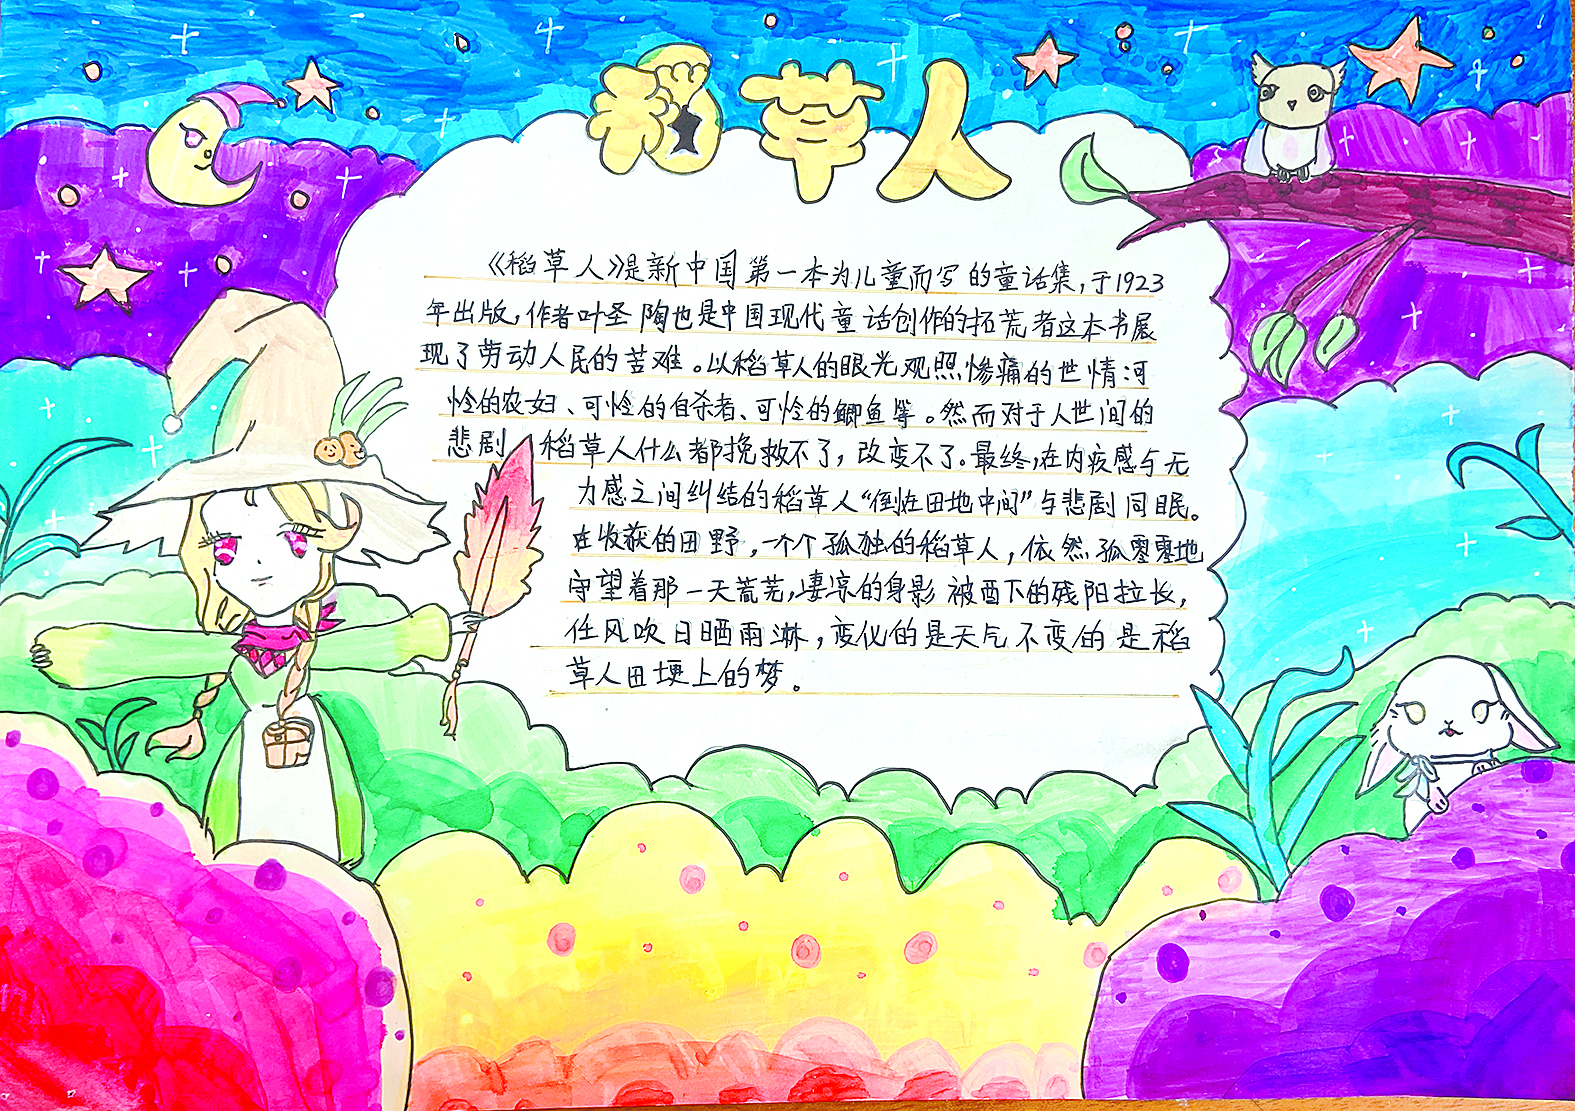 稻草人
《稻草人》是新中国第一本为儿童而写的童话集，于1923
年出版，作者叶圣陶也是中国现代童话创作的拓荒者这本书展
现了劳动人民的苦难。以稻草人的眼光观照惨痛的世情：可
怜的农妇、可怜的自杀者、可怜的鲫鱼等。然而对于人世间的
悲剧，稻草人什么都挽救不了，改变不了。最终，在内疚感与无
力感之间纠结的稻草人“倒在田地中间”与悲剧同眠。
在收获的田野，一个个孤独的稻草人，依然孤零零地
守望着那一天荒芜，凄凉的身影被西下的残阳拉长，
任风吹日晒雨淋，变化的是天气不变的是稻
草人田埂上的梦。